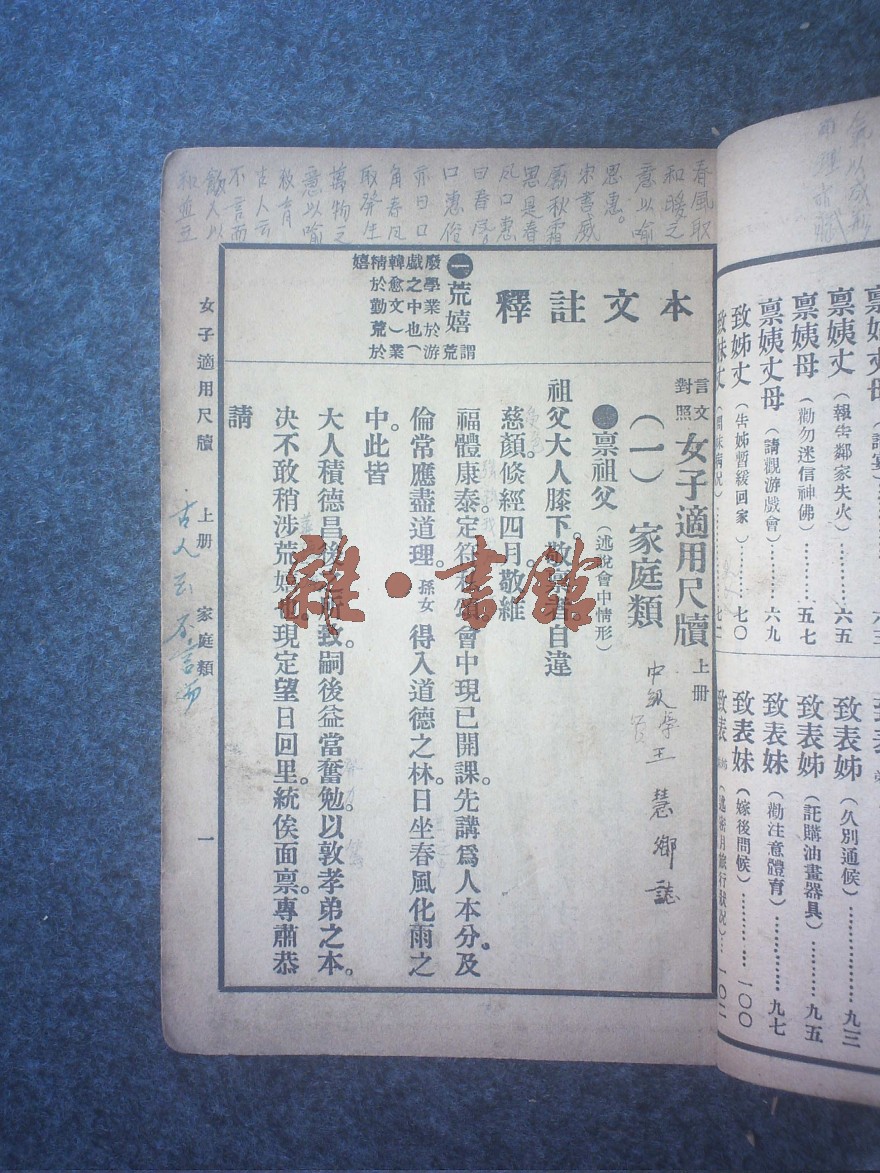 春風取
和暖之
意以喻
恩惠。
宋書威
厲秋霜
恩是春
風口惠
曰春風
口惠俗
亦曰口
角春風
取發生
萬物之
意以喻
教育
古人云
不言而
飲人以
和並立
本文註釋
㊀荒嬉 謂荒
廢學業於游
戲之中也（
韓愈文）業
精於勤荒於
嬉
言文
對照
女子適用尺牘 上册
（一） 家庭類
中級學
王慧鄉誌
禀祖父（述說會中情形）
祖父大人膝下。敬禀者。自違
慈顏。倏經四月。敬維
福體康泰。定符私頌。會中現已開課。先講爲人本分。及
倫常應盡道理。孫女得入道德之林。日坐春風化雨之
中。此皆
大人積德昌後之所致。嗣後益當奮勉。以敦孝弟之本。
決不敢稍涉荒嬉也。現定望日回里。統俟面禀。專肅恭
請
女子適用尺牘 上册 家庭類 一
古人云不言而
雜·書館
氣以成
禀姨丈
禀姨丈（報告鄰家失火）………六五
禀姨母（勸勿迷信神佛）………五七
禀姨丈母（請觀游戲會）………六九
致姊丈（告姊暫緩回家）………七〇
致妹丈
致表姊（久別通候）………九三
致表姊（託購油畫器具）………九五
致表妹（勸注意體育）………九七
致表妹（嫁後問候）………一〇〇
致表
一〇二